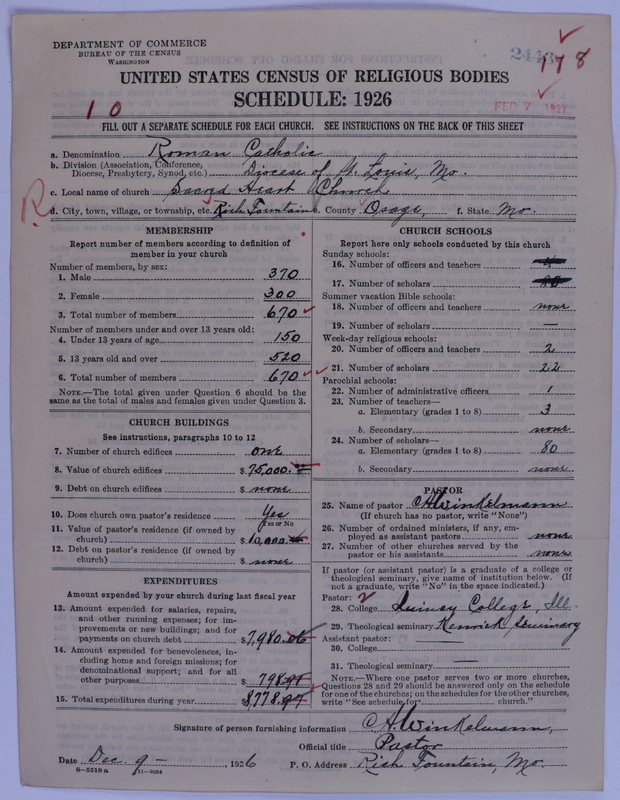 DEPARTMENT OF COMMERCE
BUREAU OF THE CENSUS
WASHINGTON
178
FEB 7 1927
UNITED STATES CENSUS OF RELIGIOUS BODIES
SCHEDULE: 1926
10
FILL OUT A SEPARATE SCHEDULE FOR EACH CHURCH. SEE INSTRUCTIONS ON THE BACK OF THIS SHEET
a. Denomination Roman Catholic
b. Division (Association, Conference, Diocese, Presbytery, Synod, etc.) Diocese of St. Louis, Mo.
c. Local name of church Sacred Heart Church
R
d. City, town, village, or township, etc. Rich Fountain e. County Osage, f. State Mo.
MEMBERSHIP
Report number of members according to definition of
member in your church
Number of members, by sex:
1. Male 370
2. Female 300
3. Total number of members 670
Number of members under and over 13 years old:
4. Under 13 years of age 150
5. 13 years old and over 520
6. Total number of members 670
NOTE.—The total given under Question 6 should be
same as the total of males and females given under Question 3.
CHURCH BUILDINGS
See instructions, paragraphs 10 to 12
7. Number of church edifices one
8. Value of church edifices $ 75,000.
9. Debt on church edifices $ none
10. Does church own pastor's residence Yes
Yes or No
11. Value of pastor's residence (if owned by
church) $ 10,000.
12. Debt on pastor's residence (if owned by
church) $ none
EXPENDITURES
Amount expended by your church during last fiscal year
13. Amount expended for salaries, repairs,
and other running expenses; for im-
provements or new buildings; and for
payments on church debt $ 7,980.
14. Amount expended for benevolences, in-
cluding home and foreign missions; for
denominational support; and for all
other purposes $ 798.97
15. Total expenditures during year $ 8,778.97
CHURCH SCHOOLS
Report here only schools conducted by this church
Sunday schools:
16. Number of officers and teachers
17. Number of scholars
Summer vacation Bible schools:
18. Number of officers and teachers none
19. Number of scholars —
Week-day religious schools:
20. Number of officers and teachers 2
21. Number of scholars 22
Parochial schools:
22. Number of administrative officers 1
23. Number of teachers—
a. Elementary (grades 1 to 8) 3
b. Secondary none
24. Number of scholars—
a. Elementary (grades 1 to 8) 80
b. Secondary none
PASTOR
25. Name of pastor C A Winkelmann
(If church has no pastor, write "None")
26. Number of ordained ministers, if any, em-
ployed as assistant pastors none
27. Number of other churches served by the
pastor or his assistants none
If pastor (or assistant pastor) is a graduate of a college or
theological seminary, give name of institution below. (If
not a graduate, write "No" in the space indicated.)
Pastor: 2
28. College Quincy College, Ill.
29. Theological seminary Kenrick Seminary
Assistant pastor:
30. College —
31. Theological seminary —
NOTE.—Where one pastor serves two or more churches,
Questions 28 and 29 should be answered only on the schedule
for one of the churches; on the schedules for the other churches,
write "See schedule for church."
Signature of person furnishing information C A Winkelmann,
Official title Pastor
Date Dec. 9 — , 1926 P. O. Address Rich Fountain, Mo.
8—5518 a 11—9054